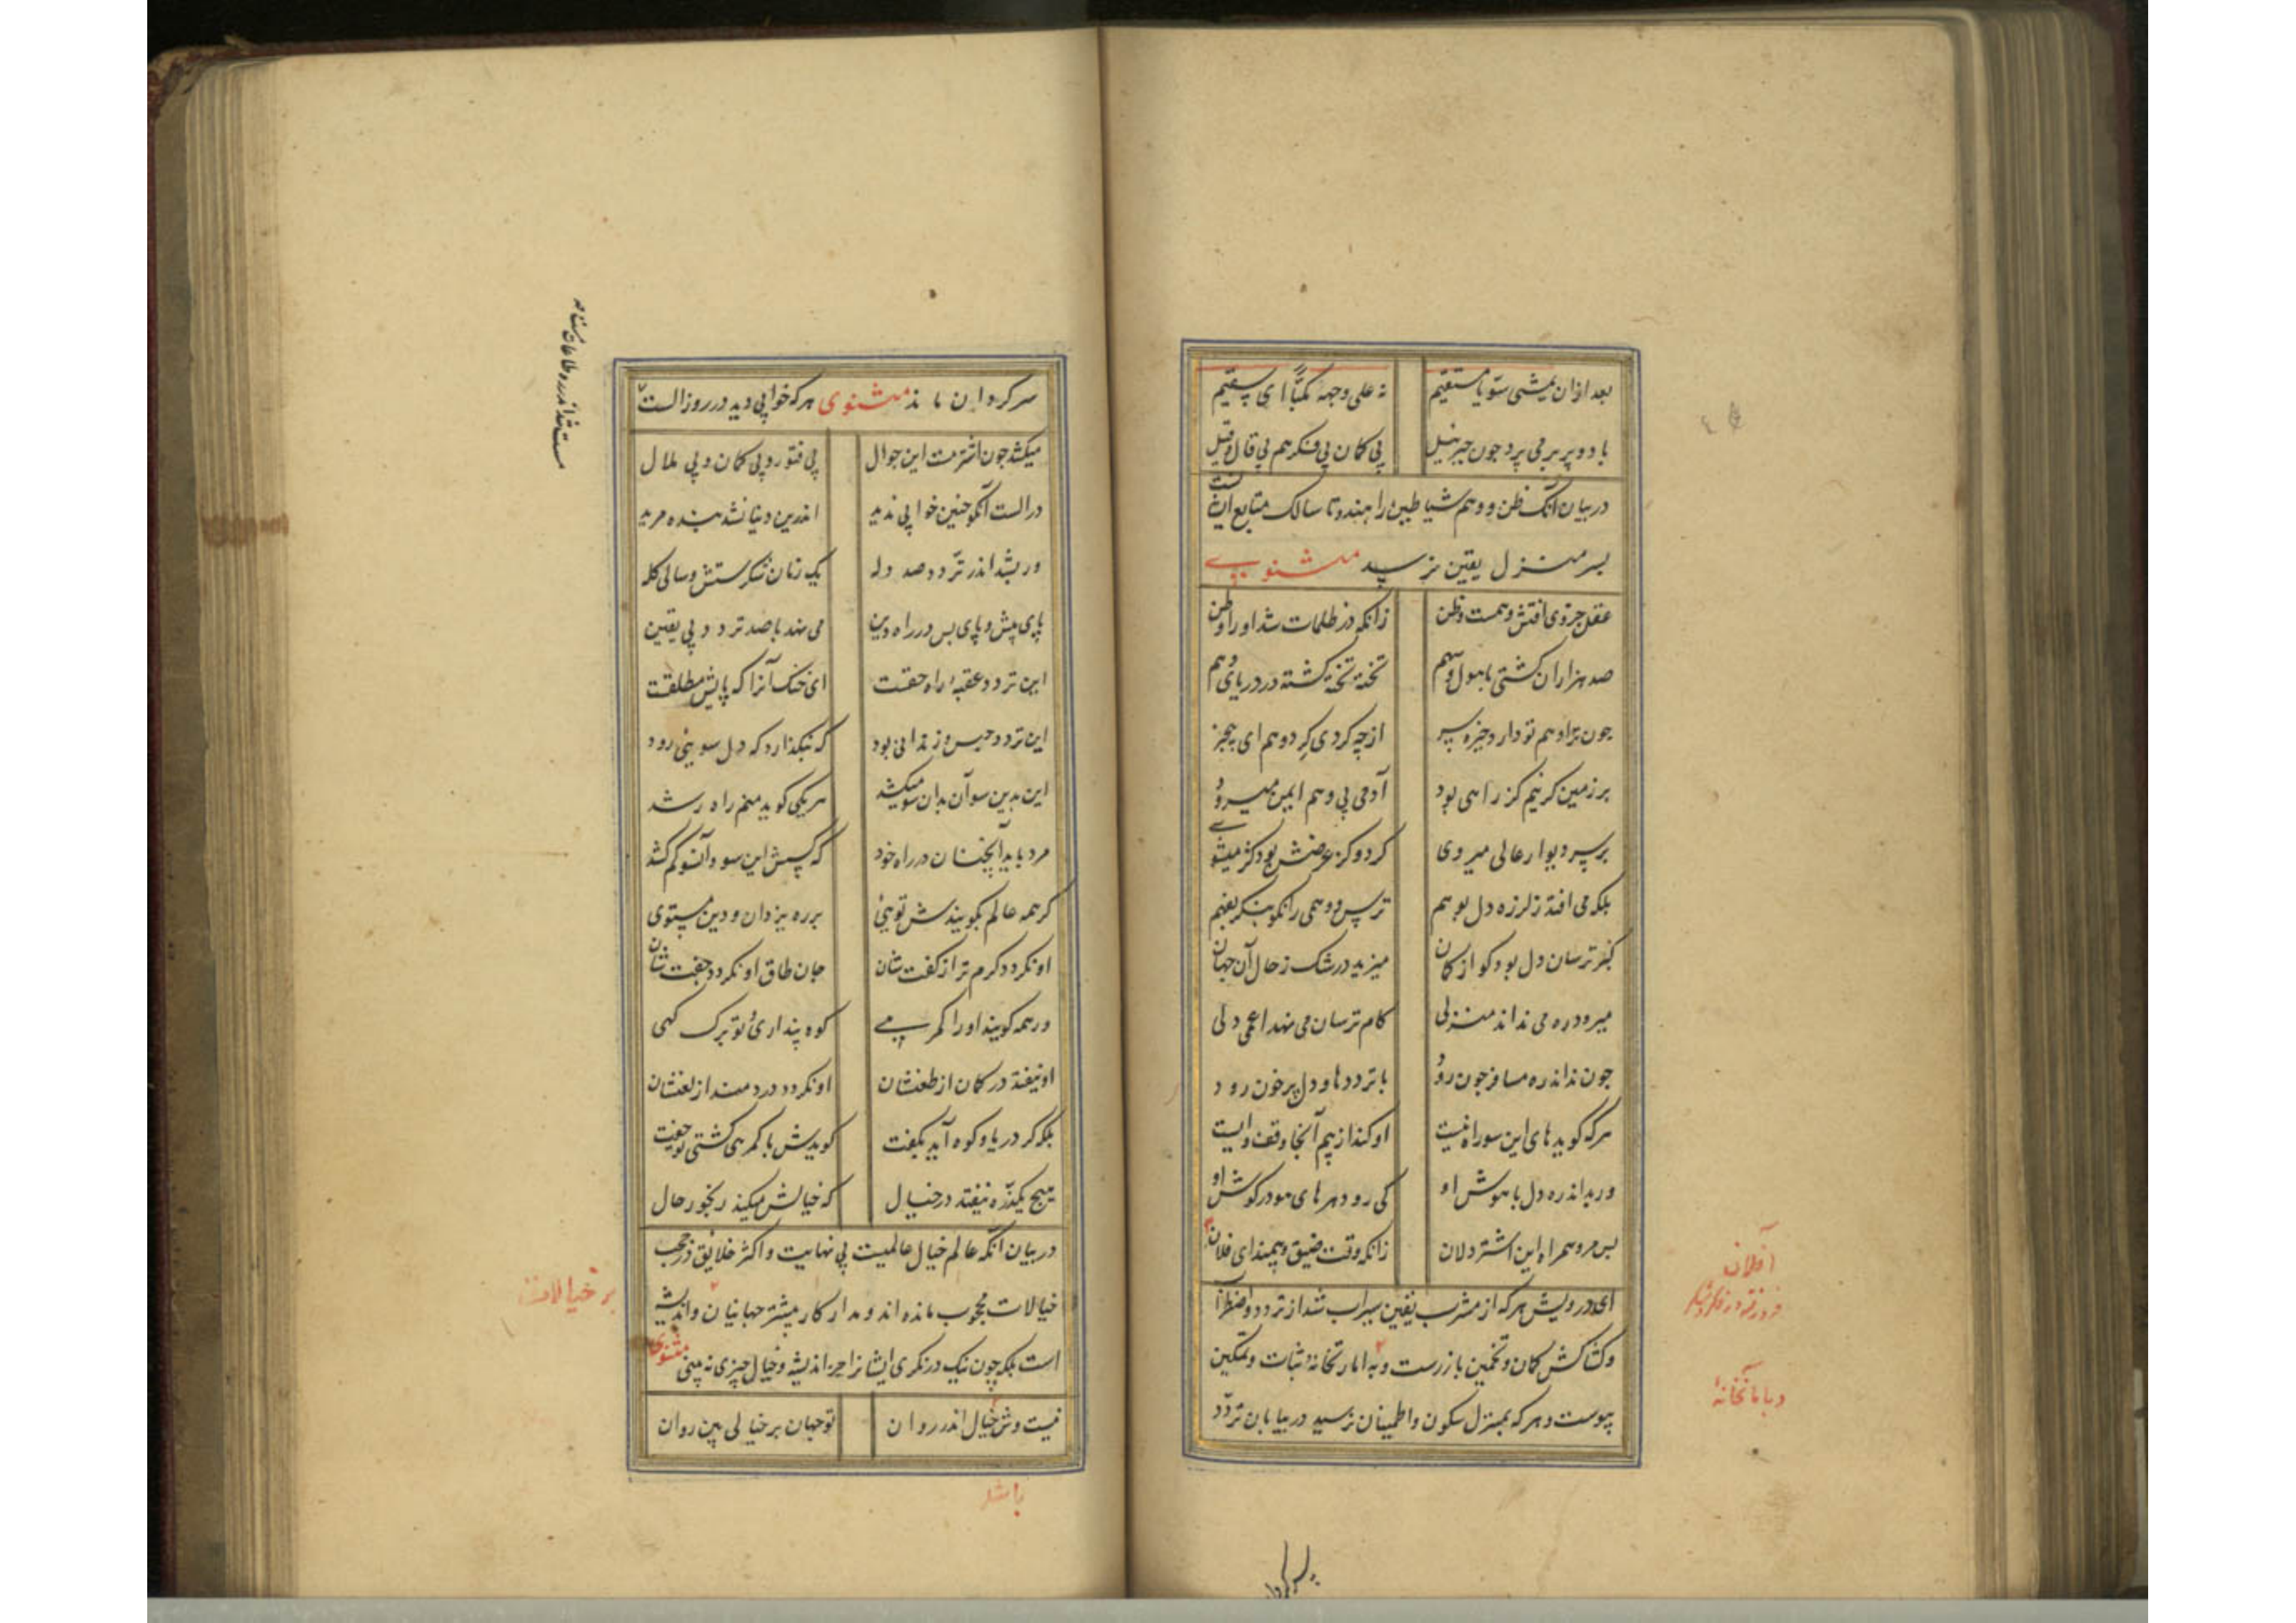 بعد ازان یمشی سویا مستقیم نه علی وجهه مکبّا ای سقیم
با دو پر بر می پرد چون جبرئیل بی کمان بی فکر هم بی قال و قیل
در بیان آنکه ظن و وهم شیاطین راهند و تا سالک متابع این
بسر منزل یقین نرسد مثنوی
عقل جزوی افتش وهمست و ظن زانکه در ظلمات شد او را وطن
صد هزاران کشتی با هول و سهم تخته تخته کشته در دریای وهم
چون ترا وهم تو دارد خیره سر از چه کردی کرد وهم ای
بر زمین کر نیم کز راهی بود آدمی بی وهم ایمن میرود
بر سر دیوار عالی میروی کر دو کز عرضش بود کژ میشوی
بلکه می افتد ز لرزه دل بوهم ترس وهمی را نکو بنکر بفهم
کبر ترسان دل بود کو از کمان میزید در شک ز حال آن جهان
میرود ره می نداند منزلی کام ترسان می نهد اعمی دلی
چون نداند ره مسافر چون رود با ترددها و دل پر خون رود
هر که کوید های این سو راه نیست او کند از بیم آنجا وقف و ایست
ور بداند ره دل با هوش او کی رود هر های هو در کوش او
بس مرو همراه این اشتر دلان زانکه وقت ضیق و بیمند ای فلان
ای درویش هر که از مشرب یقین سیراب شد از تردد و اضطراب
و کشاکش کمان و تخمین باز رست و به امارتخانه ثبات و تمکین
پیوست و هر که بمنزل سکون و اطمینان نرسید در بیابان تردّد
آفلان
سرکردان ماند مثنوی هر که خوابی دید در روز الست
مست باشد در ره طاعات مست
میکشد چون اشتر مست این جوال بی فتور و بی کمان و بی ملال
در الست آنکو چنین خوابی ندید اندرین دنیا نشد بنده مرید
ور بشد اندر تردد صد دله یک زمان شکرستش و سالی کله
پای پیش و پای بس در راه دین می نهد با صد تردد بی یقین
این تردد عقبه راه حقست ای خنک آنرا که پایش مطلقست
این تردد حبس و زندانی بود که نبکذارد که دل سویی رود
این بدین سو آن بدان سو میکشد هر یکی کوید منم راه رشد
مرد باید آنچنان در راه خود که کسش این سو و آنسو کم کشد
کر همه عالم بکویندش تویی بر ره یزدان و دین مستوی
او نکردد کرم تر از کفت شان جان طاق او نکردد جفت شان
ور همه کویند او را کمرهی کوه پنداری و تو برک کهی
او نیفتد در کمان از طعنشان او نکردد دردمند از لعنشان
بلکه کر دریا و کوه آید بکفت کویدش با کمرهی کشتی تو جفت
هیچ یکذره نیفتد در خیال که خیالش میکند رنجور حال
در بیان آنکه عالم خیال عالمیست بی نهایت و اکثر خلائق در حجب
خیالات محجوب مانده اند و مدار کار بیشتر جهانیان و اندیشه
است بلکه چون نیک درنکری ایشانرا جز اندیشه و خیال چیزی نه بینی مثنوی
بر خیالات
نیست وش خیال اندر روان تو جهان بر خیالی بین روان
باشد